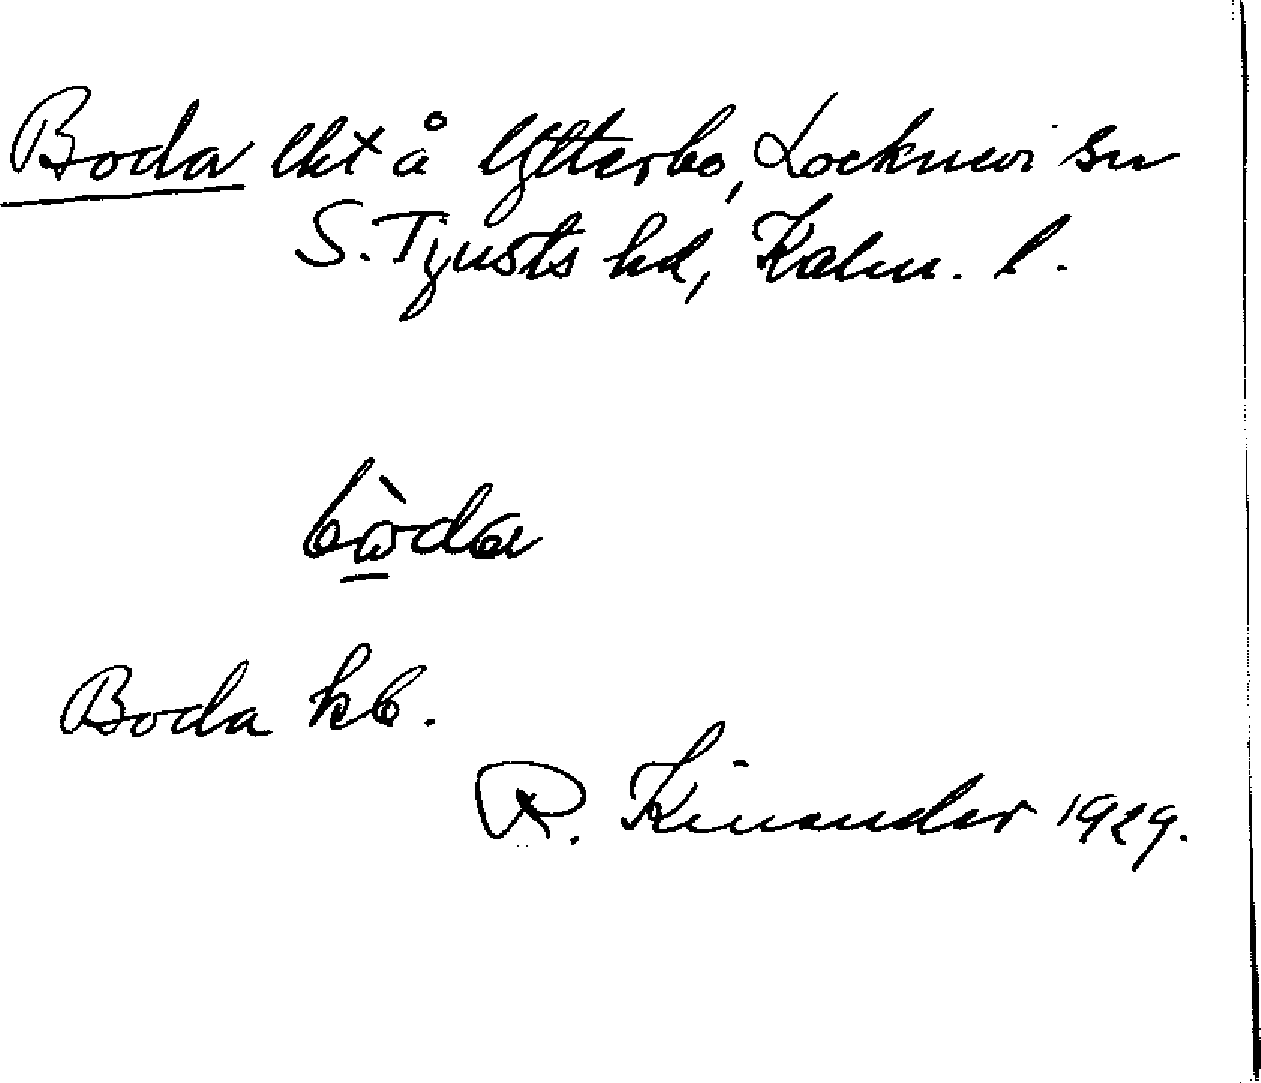 Boda lht å Ytterbo, Locknevi sn
S. Tjusts hd, Kalm. l.
bωda
Boda kb.
R. Kinander 1929.